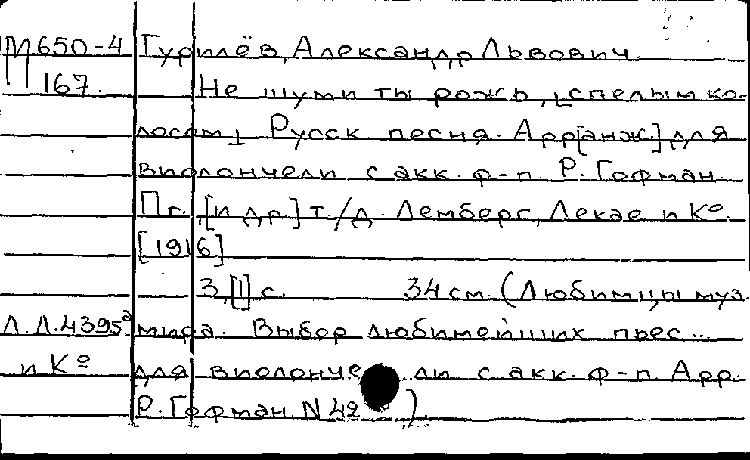 М650-4 Гурилёв, Александр Львович
167. Не шуми ты рожь, [спелым ко-
лосом] Русск песня. Арр[анж] для
виолончели с акк. ф-п. Р. Гофман
Пг. [и др.] т./д. Лемберг, Лекае и Кº.
[1916]
3,[1] с. 34 см. (Любимцы муз.
Л.Л.4395ª мира. Выбор любимейших пьес...
и Кº для виолончели с акк. ф-п. Арр.
Р. Гофман N 42)